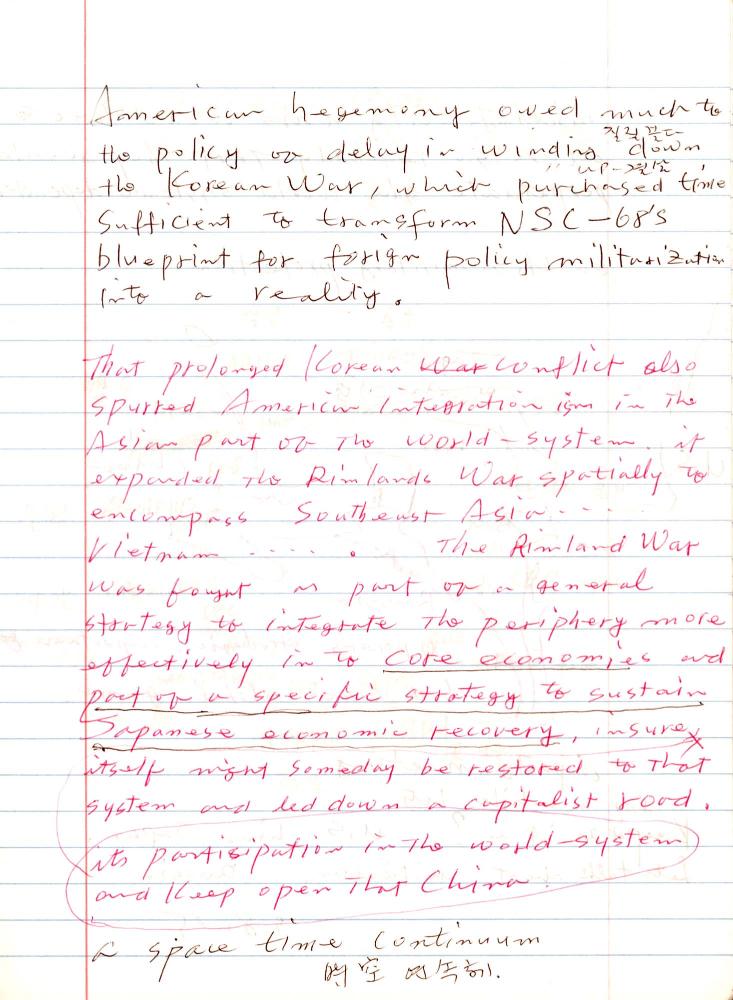 American hegemony owed much to
질질끌다
the policy of delay in winding down
" up-결속
the Korean War, which purchased time
sufficient to transform NSC-68's
blueprint for forign policy militarization
into a reality.
That prolonged Korean War conflict also
spurred American integration ism in the
Asian part of the world-system. it
expanded the Rimlands War spatially to
encompass Southeast Asia....
Vietnam ..... . The Rimland War
was fought as part of a general
strategy to integrate the periphery more
effectively in to core economies and
part of a specific strategy to sustain
Japanese economic recovery, insure
itself might someday be restored to that
system and led down a capitalist road.
its partisipation in the world-system
and keep open that China.
a space time continuum
時空 연속체.